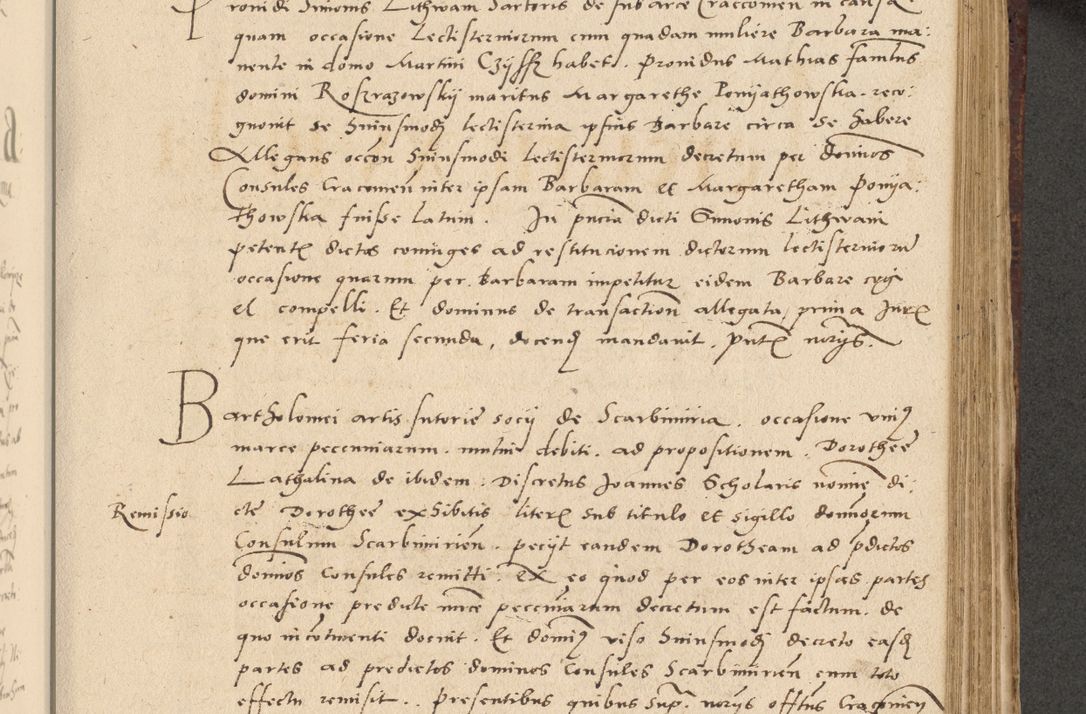 Providi Simonis Lithwani Sartoris de sub arce Craccovien in causa
quam occasione Lectisterniorum cum quadam muliere Barbara ma:
nente in domo Martini habet. Providus Mathias famtus
domini Roszrazowskij maritus Margarethe Poniathowska. reco:
gnovit se huiusmodj lectisternia ipsius Barbare circa se habere
Allegans occon huiusmodi lectisterniorum decretum per dominos
Consules Cracovien inter ipsam Barbaram et Margaretham Ponya:
thowska fuisse latum. In pncia dicti Simonis Lithwani
petente dictos coniuges ad restitucionem dictorum lectisterniorum
occasione quarum per Barbaram impetitur eidem Barbare cogi
et compelli. Et dominus de transaction allegata prima Jure
que erit feria secunda, docendj mandavit. pnte norijs.
Bartholomei artis sutorie socij de Scarbimiria. occasione unius
marce peccuniarum. mutui debiti. ad propositionem. Dorothee
Lathalina de ibidem. Discretus Joannes Scholaris nomine di:
Remissio
cte Dorothee exhibitis litere sub titulo et sigillo dominorum
Consulum Scarbimirien. pecijt eandem Dorotheam ad pdictos
dominos Consules remitti. ex eo quod per eos inter ipsas partes
occasione predicte mrce peccuniarum decretum est factum. de
quo incotinenti docuit. Et dominus viso huiusmodj decreto easdj
partes ad predictos dominos Consules Scarbimirien cum toto
effectu remisit. Presentibus quibus sup. norijs offitus Cracovien